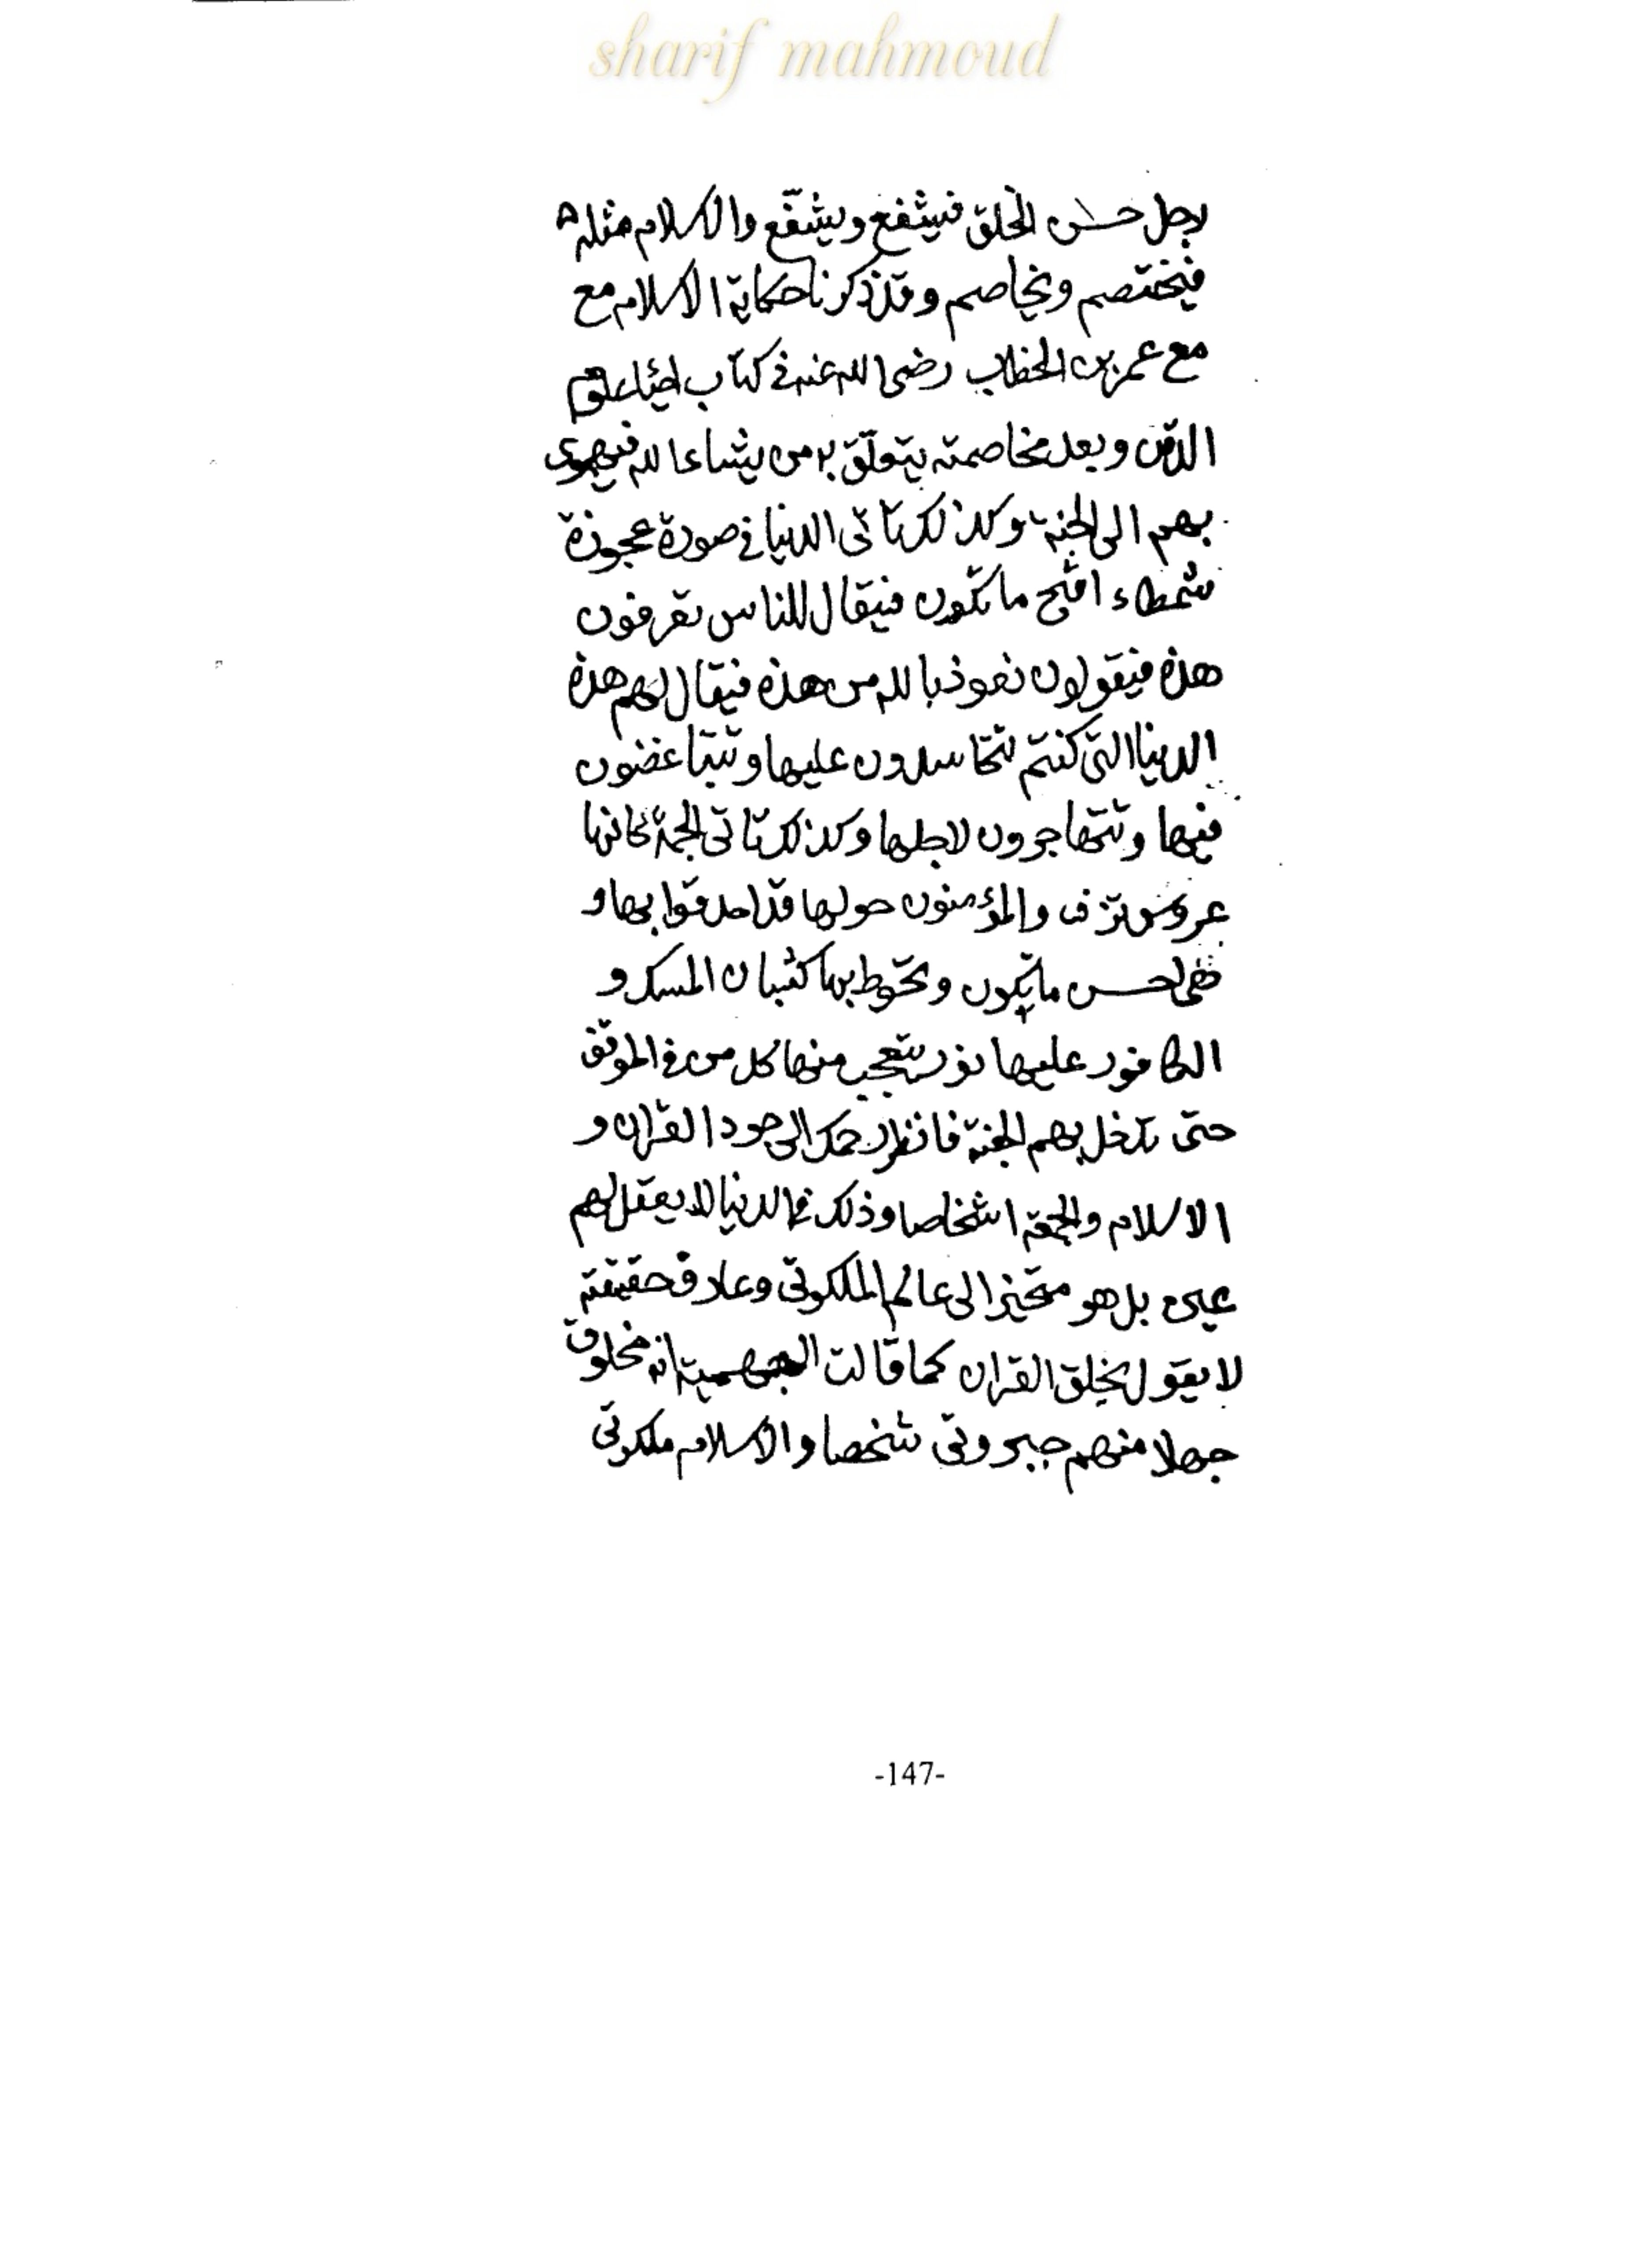 sharif mahmoud
رجل حسن الخلق فيشفع ويشفّع والاسلام مثله
فيختصم ويخاصم وقد ذكرنا حكاية الاسلام مع
مع عمر بن الخطاب رضى الله عنه فى كتاب احياء علوم
الدين وبعد مخاصمته يتعلّق به من يشاء الله فيهوى
بهم الى الجنة وكذلك تاتى الدنيا فى صورة عجوزة
شمطاء اقبح ما تكون فيقال للناس تعرفون
هذه فيقولون نعوذ بالله من هذه فيقال لهم هذه
الدنيا التى كنتم تتحاسدون عليها وتتباغضون
فيها وتتهاجرون لاجلها وكذلك تاتى الجمعة كانها
عروس تزف والمؤمنون حولها قد احدقوا بها و
هى احسن ما تكون وتحوط بها كثبان المسك و
الكافور عليها نور يتعجب منها كل من فى الموقف
حتى تدخل بهم الجنة فانظر رحمك الى جود القران و
الاسلام والجمعة اشخاصا وذلك فى الدنيا لا يعقل لهم
عين بل هو متحيز الى عالم الملكوتى وعارف حقيقته
لا يقول بخلق القران كما قالت الجهمية انه مخلوق
جهلا منهم جبروتى شخصا والاسلام ملكوتى
-147-